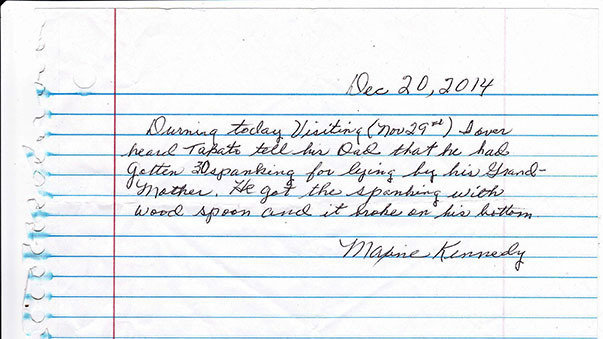 Dec 20, 2014
Durning today Visiting (Nov 29rd) I over
heard Takato tell his Dad that he had
Gotten 30 spanking for lying by his Grand-
Mother. He got the spanking with
wood spoon and it broke on his bottom
Maxine Kennedy